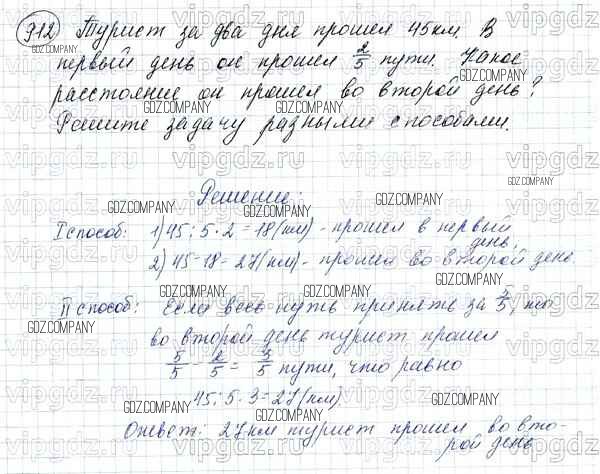 912 Турист за два дня прошел 45км. В
первый день он прошел 2/5 пути. Какое
расстояние он прошел во второй день?
Решите задачу разными способами.
Решение:
I способ: 1) 45 : 5 · 2 = 18 (км) - прошел в первый
день,
2) 45 - 18 = 27 (км) - прошел во второй день.
II способ: Если весь путь принять за 5/5, то
во второй день турист прошел
5/5 - 2/5 = 3/5 пути, что равно
45 : 5 · 3 = 27 (км).
Ответ: 27 км турист прошел во вто-
рой день